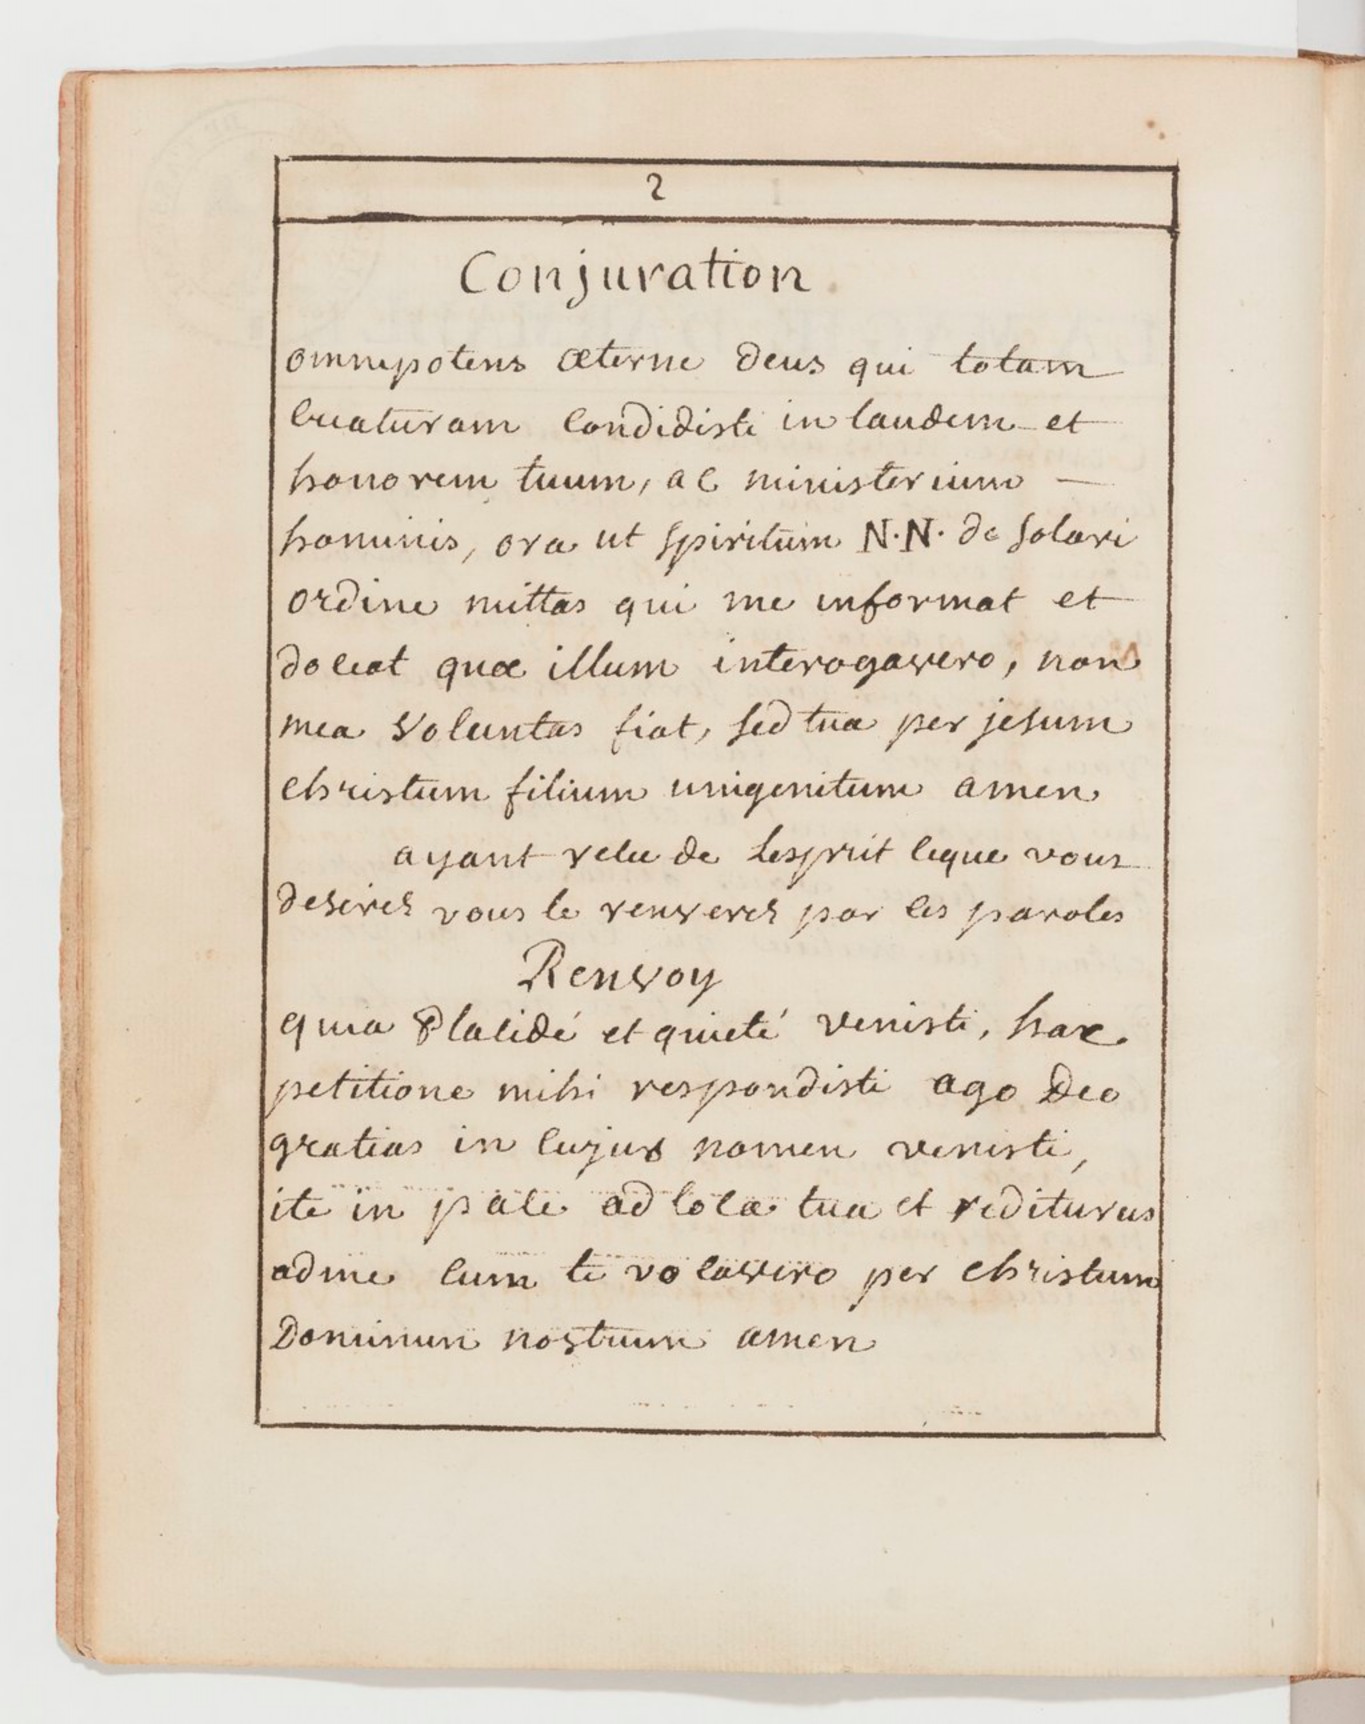 2
Conjuration
omnipotens æterne deus qui totam
creaturam condidisti in laudem et
honorem tuum, ac ministerium
hominis, oro ut spiritum N.N. de solari
ordine mittas qui me informat et
doceat quæ illum interogavero, non
mea voluntas fiat, sed tua per jesum
christum filium unigenitum amen
ayant recu de Lesprit ceque vous
desirez vous le renveres par ces paroles
Renvoy
quia Placidé et quieté venisti, hac
petitione mihi respondisti ago Deo
gratias in cujus nomen venisti,
ite in pace ad loca tua et rediturus
adme cum te vocavero per christum
Dominum nostrum amen